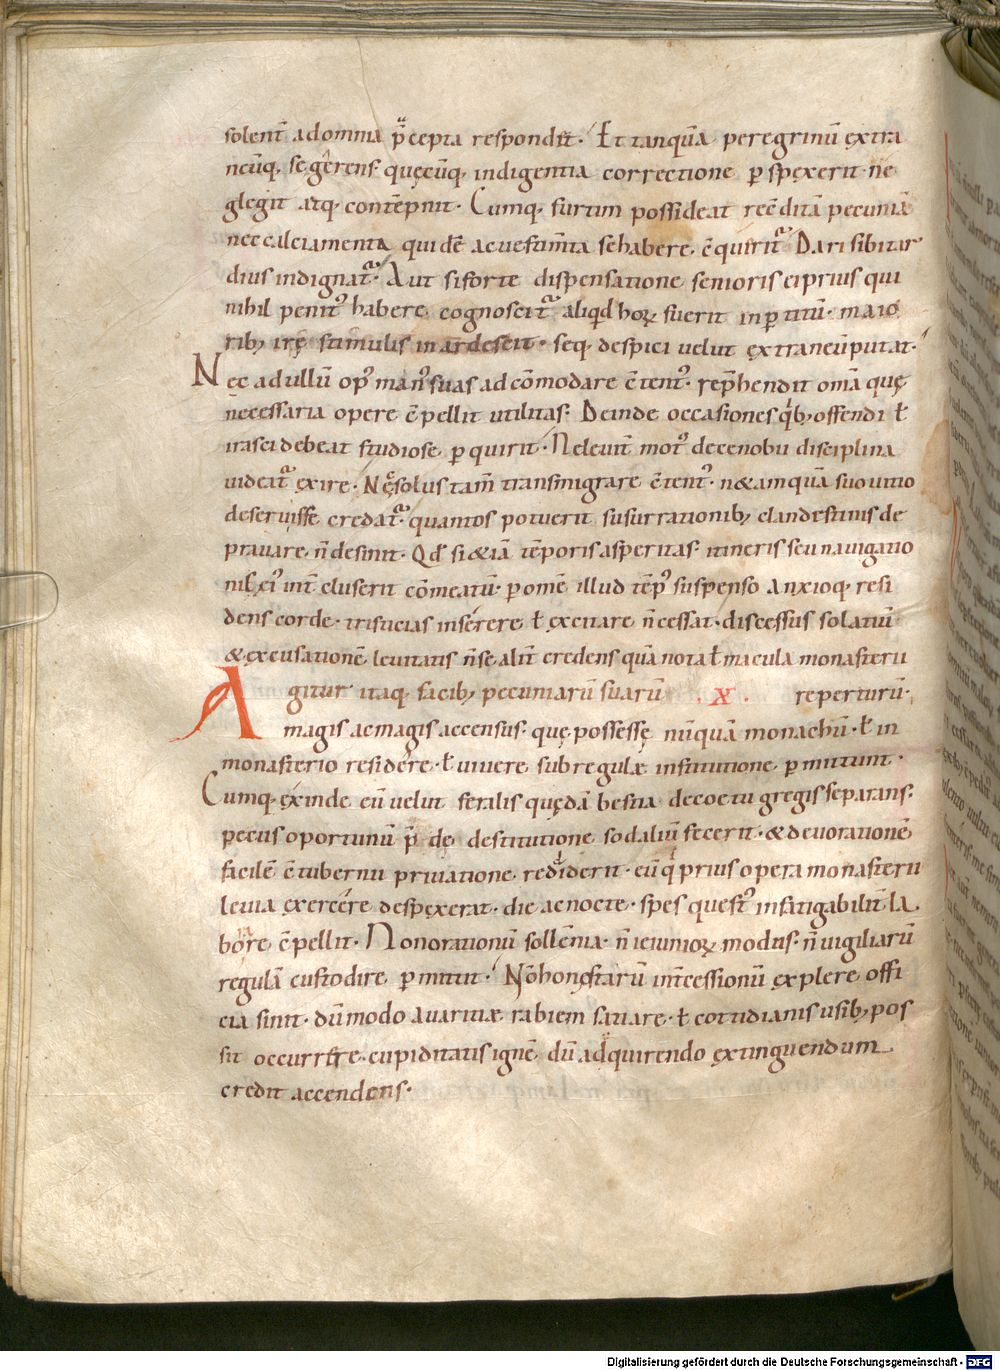 solent̄ adomnia p̄cepta respondit. Et tanquā peregrinū extra
neūq, se gerens. quęcūq, indigentia correctione p spexerit. ne
glegit atq, contēpnit. Cumq, furtim possideat recōditā pecuniā
nec calciamenta quidē ac vestim̄ta se habere, c̄querit᷑. Dari sibi tar
dius indignat᷑. Aut si forte dispensatione senioris ei prius qui
nihil penit᷒ habere, cognoscit᷑ aliqd hoꝝ fuerit inptitū. maio
rib, irę stimulis inardescit. seq, despici velut extraneū putat.
Nec ad ullū op᷒ man᷒ suas ad cōmodare c̄tent᷒. rep̄hendit om̄a quę,
necessaria opere c̄pellit utilitas. Deinde occasiones qib, offendi ł
irasci debeat studiose, pquirit. Ne levit̄ mot᷒ de cenobii disciplina
videat᷑ exire. Nec solus tam̄ transmigrare c̄tent᷒. n& amquā suo vitio
deseruisse credat᷑. quantos potuerit susurrationib, clandestinis de
pravare, n̄ desinit. Qd si &iā tēporis asperitas. itineris seu navigatio
nis ei᷒ int̄cluserit cōmeatū. p om̄e illud tēp᷒ suspenso anxioq, resi
dens corde. tristicias inserere ł excitare n̄ cessat. discessus solatiū
& excusationē levitatis n̄ se alit̄ credens quā nota ł macula monasterii
Agitur itaq, facib, pecuniarū suarū .x. reperturū.
magis ac magis accensus. quę possessę nūquā monachū. ł in
monasterio residere. ł vivere sub regulæ institutione pmittunt.
Cumq, exinde eū velut feralis quędā bestia de coetu gregis separans.
pecus oportunū p̄dę destitutione sodaliū fecerit. & devorationē
facilē c̄tubernii privatione reddiderit. eū qi prius opera monasterii
levia exercere despexerat. die ac nocte. spes quest᷒ infatigabilit̄ la
bore c̄pellit. Non orationū sollēnia. n̄ ieiunioꝝ modus. n̄ vigiliarū
regulā custodire pmittit. Nō honestarū int̄cessionū explere offi
cia sinit. dū modo avaritiæ rabiem satiare. ł cotidianis usib, pos
sit occurrere. cupiditatis ignē, dū adquirendo extinguendum
credit accendens.
Digitalisierung gefördert durch die Deutsche Forschungsgemeinschaft - DFG